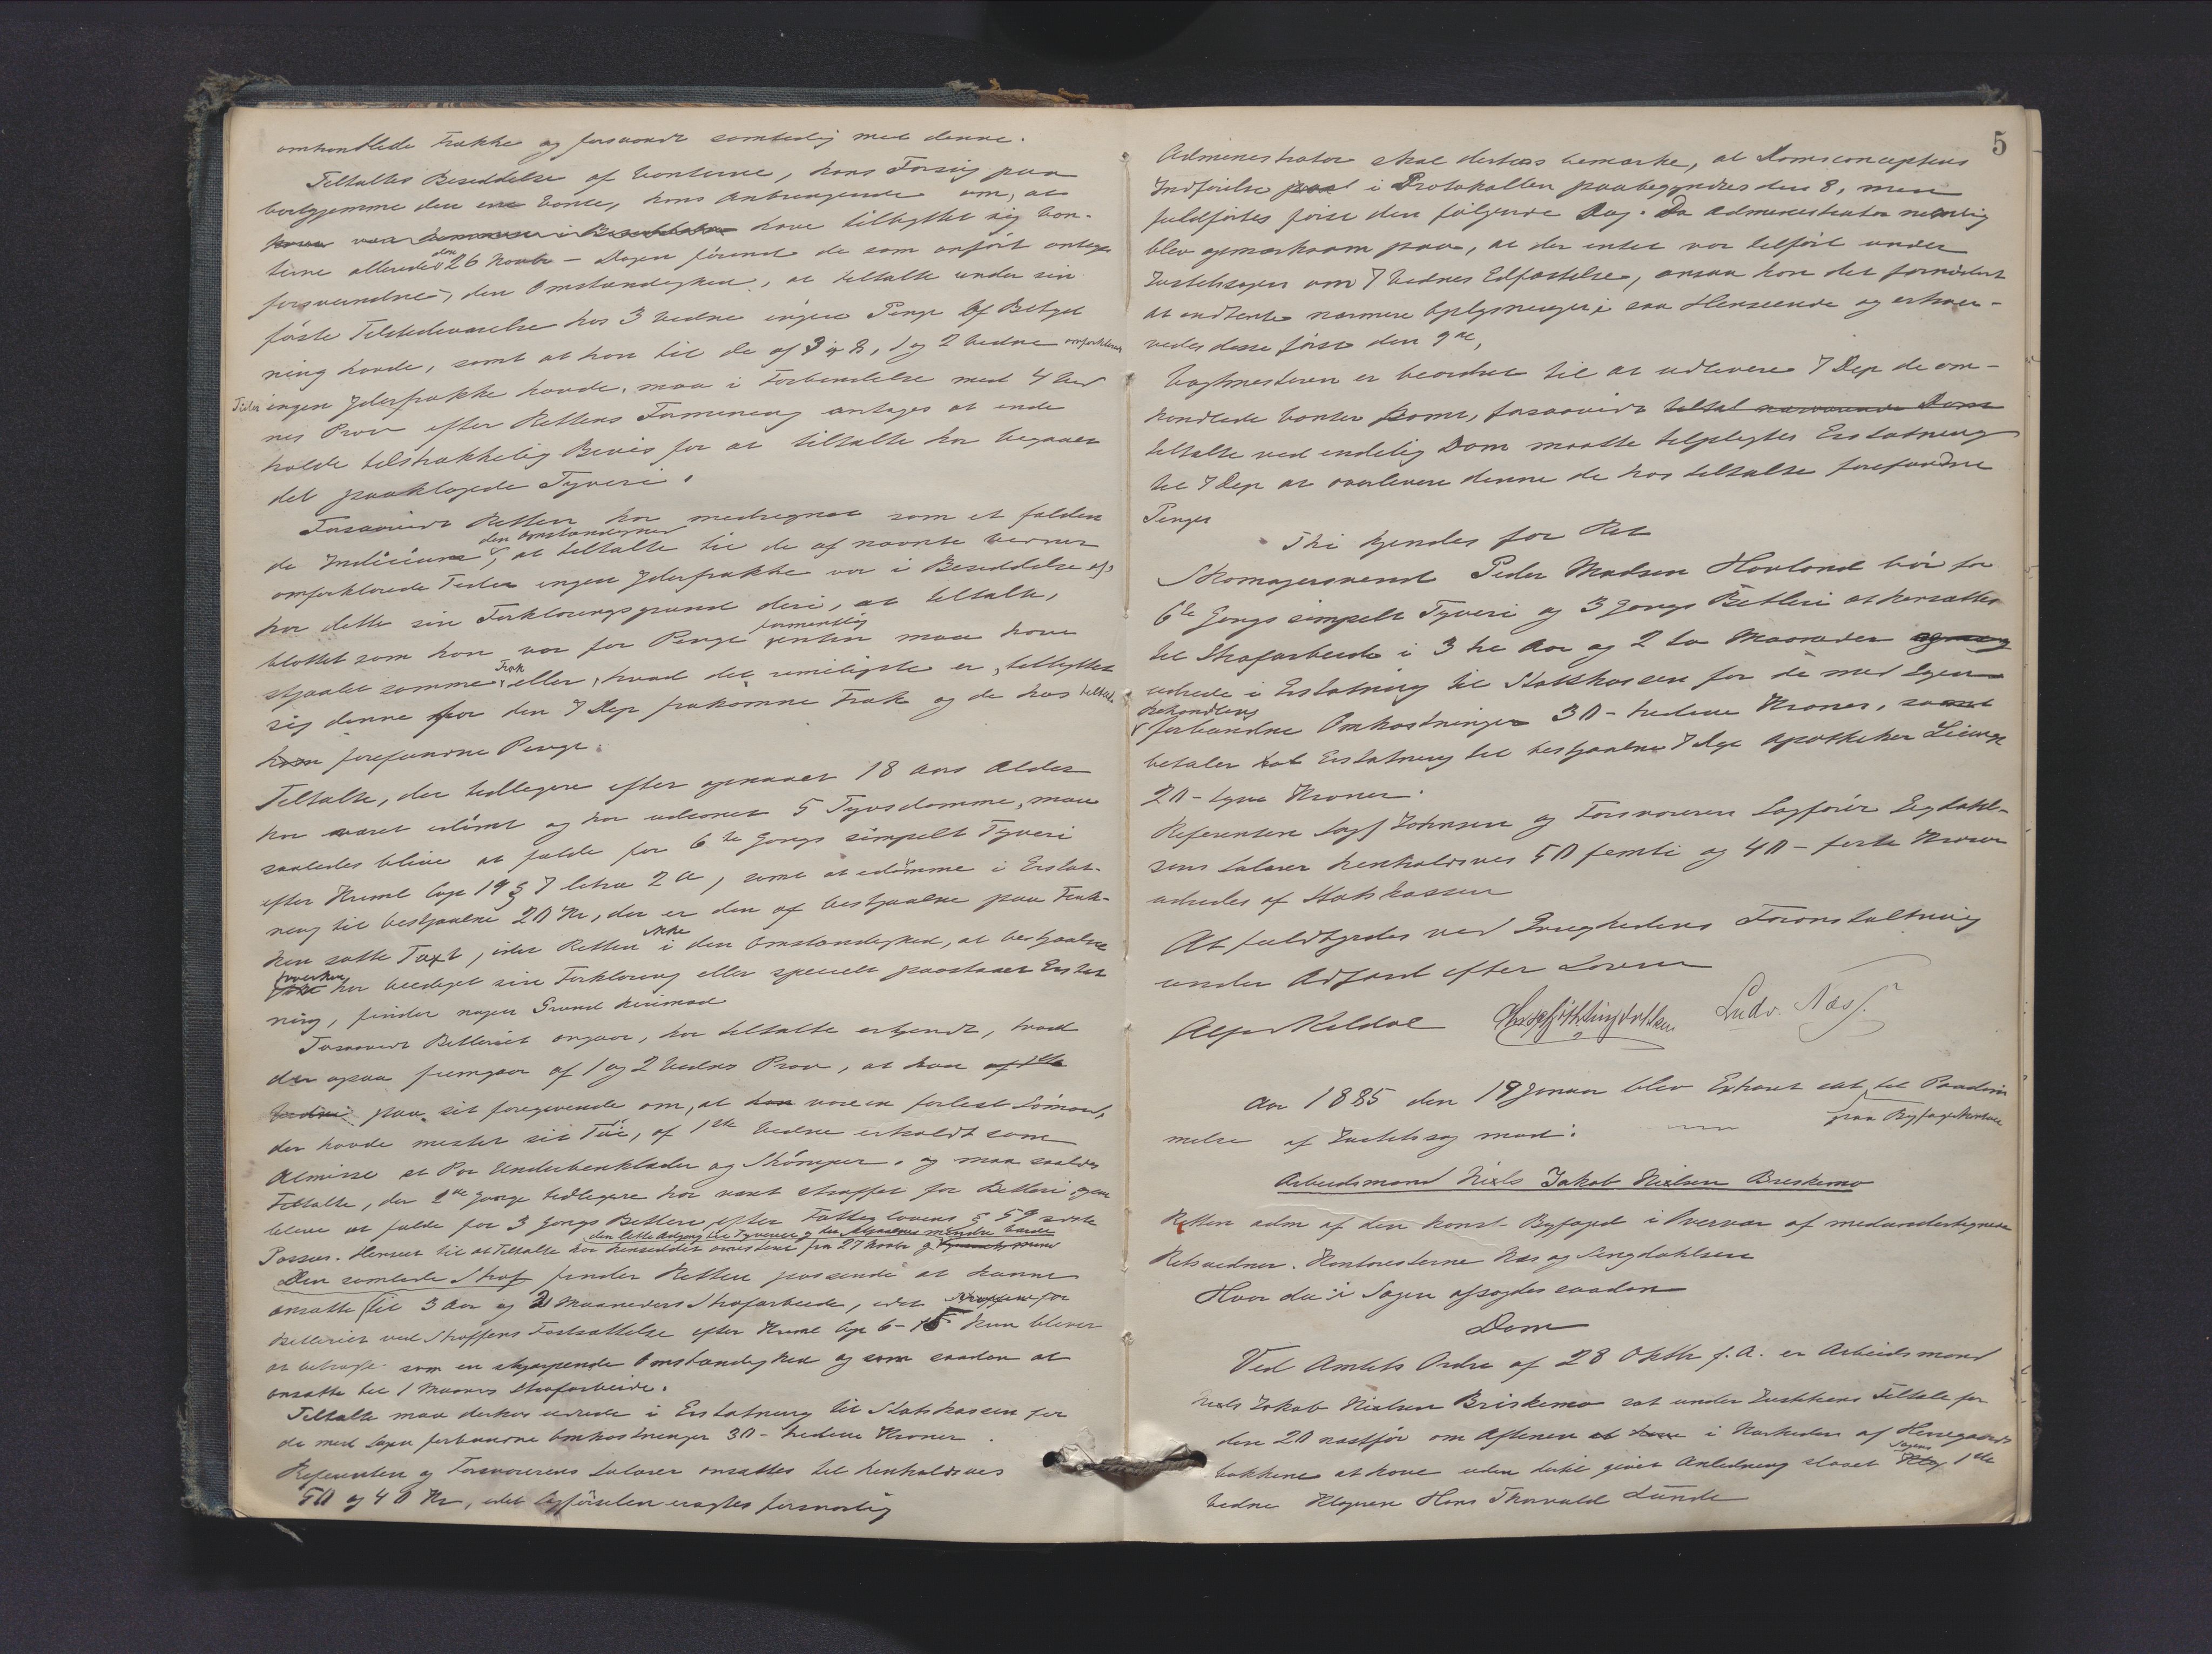 omhandlede Frakke og forsvandt samtidig med denne.
Tiltaltes Besiddelse af Vanterne, hans Forsøg paa
bortgjemme den ene Vante, hans Anbringende om, at
have tilbyttet sig Van-
terne allerede den 26 Novbr - Dagen førend de som anført antages
forsvundne, den Omstændighed, at tiltalte under sin
første Tilstedeværelse hos 3 Vidne ingen Penge af Betyd
ning havde, samt at han til de af 3 og 2, 1 og 2 Vidne omforklarede
Tider ingen Yderfrakke havde, maa i Forbindelse med 4 Vid
nes Prov efter Rettens Formening antages at inde
holde tilstrækkelig Bevis for at tiltalte har begaaet
det paaklagede Tyveri.
Forsaavidt Retten har medregnet som et fælden
de Indicium den Omstændighed, at tiltalte til de af nævnte Vidner
omforklarede Tider ingen Yderfrakke var i Besiddelse af,
har dette sin Forklaringsgrund deri, at tiltalte,
blottet som han var for Penge formentlig enten maa have
stjaalet samme Frak eller, hvad det rimeligste er, tilbyttet
sig denne for den 7 Dep frakomne Frak og de hos tiltalte
forefundne Penge.
Tiltalte, der tidligere efter opnaaet 18 Aars Alder
har været idømt og har udsonet 5 Tyvsdomme, maa
saaledes blive at fælde for 6te Gangs simpelt Tyveri
efter Kriml Cap 19 § 7 Litra 2 a, samt at idømme i Erstat-
ning til bestjaalne 20 Kr, der er den af bestjaalne paa Frak-
ken satte Taxt, idet Retten ikke i den Omstændighed, at bestjaalne
hverken har beediget sin Forklaring eller specielt paastaaet Erstat
ning, finder nogen Grund herimod
Forsaavidt Betleriet angaar, har tiltalte erkjendt, hvad
der ogsaa fremgaar af 1 og 2 Vidnes Prov, at have
paa sit foregivende om, at være en forlist Sømand,
der havde mistet sit Tøi, af 1ste Vidne erholdt som
Almisse et Par Underbenklæder og Strømper. og maa saaledes
Tiltalte, der 2de Gange tidligere har været straffet for Betleri igjen
blive at fælde for 3 Gangs Betleri efter Fattiglovens § 59 sidste
den lette Adgang til Tyveriet og det stjaalnes mindre Værdi
Passus. Henset til at Tiltalte har hensiddet arresteret fra 27 Novbr og
Den samlede Straf finder Retten passende at kunne
ansætte til 3 Aar og 2 Maaneders Strafarbeide, idet Straffen for
Betleriet ved Straffens Fastsættelse efter Kriml Cap 6 - 15 kun bliver
at betragte som en skjærpende Omstændighed og som saadan at
ansætte til 1 Maaneds Strafarbeide.
Tiltalte maa derhos udrede i Erstatning til Statskassen for
de med Sagen forbundne Omkostninger 30 - tredive Kroner.
Referenten og Forsvarerens Salarer ansættes til henholdsvis
50 og 40 Kr, idet Sagførselen eragtes forsvarlig
5
Administrator skal derhos bemærke, at Domsconceptens
Indførelse i Protokollen paabegyndtes den 8, men
fuldførtes først den følgende Dag. Da Administrator nemlig
blev opmærksom paa, at der intet var tilført under
Justitssagen om 7 Vidnes Edfæstelse, ansaa han det fornødent
at indhente nærmere Oplysninger i saa Henseende og erhver-
vedes disse først den 9de,
Vagtmesteren er beordret til at udlevere 7 Dep de om-
handlede Vanter samt, forsaavidt
tiltalte ved endelig Dom maatte tilpligtes Erstatning
til 7 Dep at overlevere denne de hos tiltalte forefundne
Penge
Thi kjendes for Ret
Skomagersvend Peder Madsen Hovland bør for
6te Gangs simpelt Tyveri og 3 Gangs Betleri at hensættes
til Strafarbeide i 3 tre Aar og 2 to Maaneder
udrede i Erstatning til Statskassen for de med Sagens
Behandling forbundne Omkostninger 30 - tredive Kroner, samt
betaler Erstatning til bestjaalne 7 Dep Apotheker
20 - tyve Kroner.
Referenten Sagf Johnsen og Forsvareren Sagfører Engdahl-
sens Salarer henholdsvis 50 femti og 40 - førti Kroner
udredes af Statskassen
At fuldbyrdes ved Øvrighedens Foranstaltning
under Adfærd efter Loven
Alf Keldal Ludv. Næss.
Aar 1885 den 19 Januar blev Extraret sat til Paadøm
paa Byfogedkontoret
melse af Justitssag mod:
Arbeidsmand Niels Jakob Nielsen Breskemo
Retten adm af den konst. Byfoged i Overvær af medundertegnede
Retsvidner. Kontoristerne Næs og Engdahlsen
Hvor da i Sagen afsagdes saadan
Dom
Ved Amtets Ordre af 28 Oktbr f.A. er Arbeidsmand
Niels Jakob Nielsen Briskemo sat under Justitiens Tiltale for
den 20 næstfør om Aftenen i Nærheden af Herregaards
bakkene at have uden dertil given Anledning slaaet Sagens 1ste
Vidne Klageren Hans Thorvald Lunde